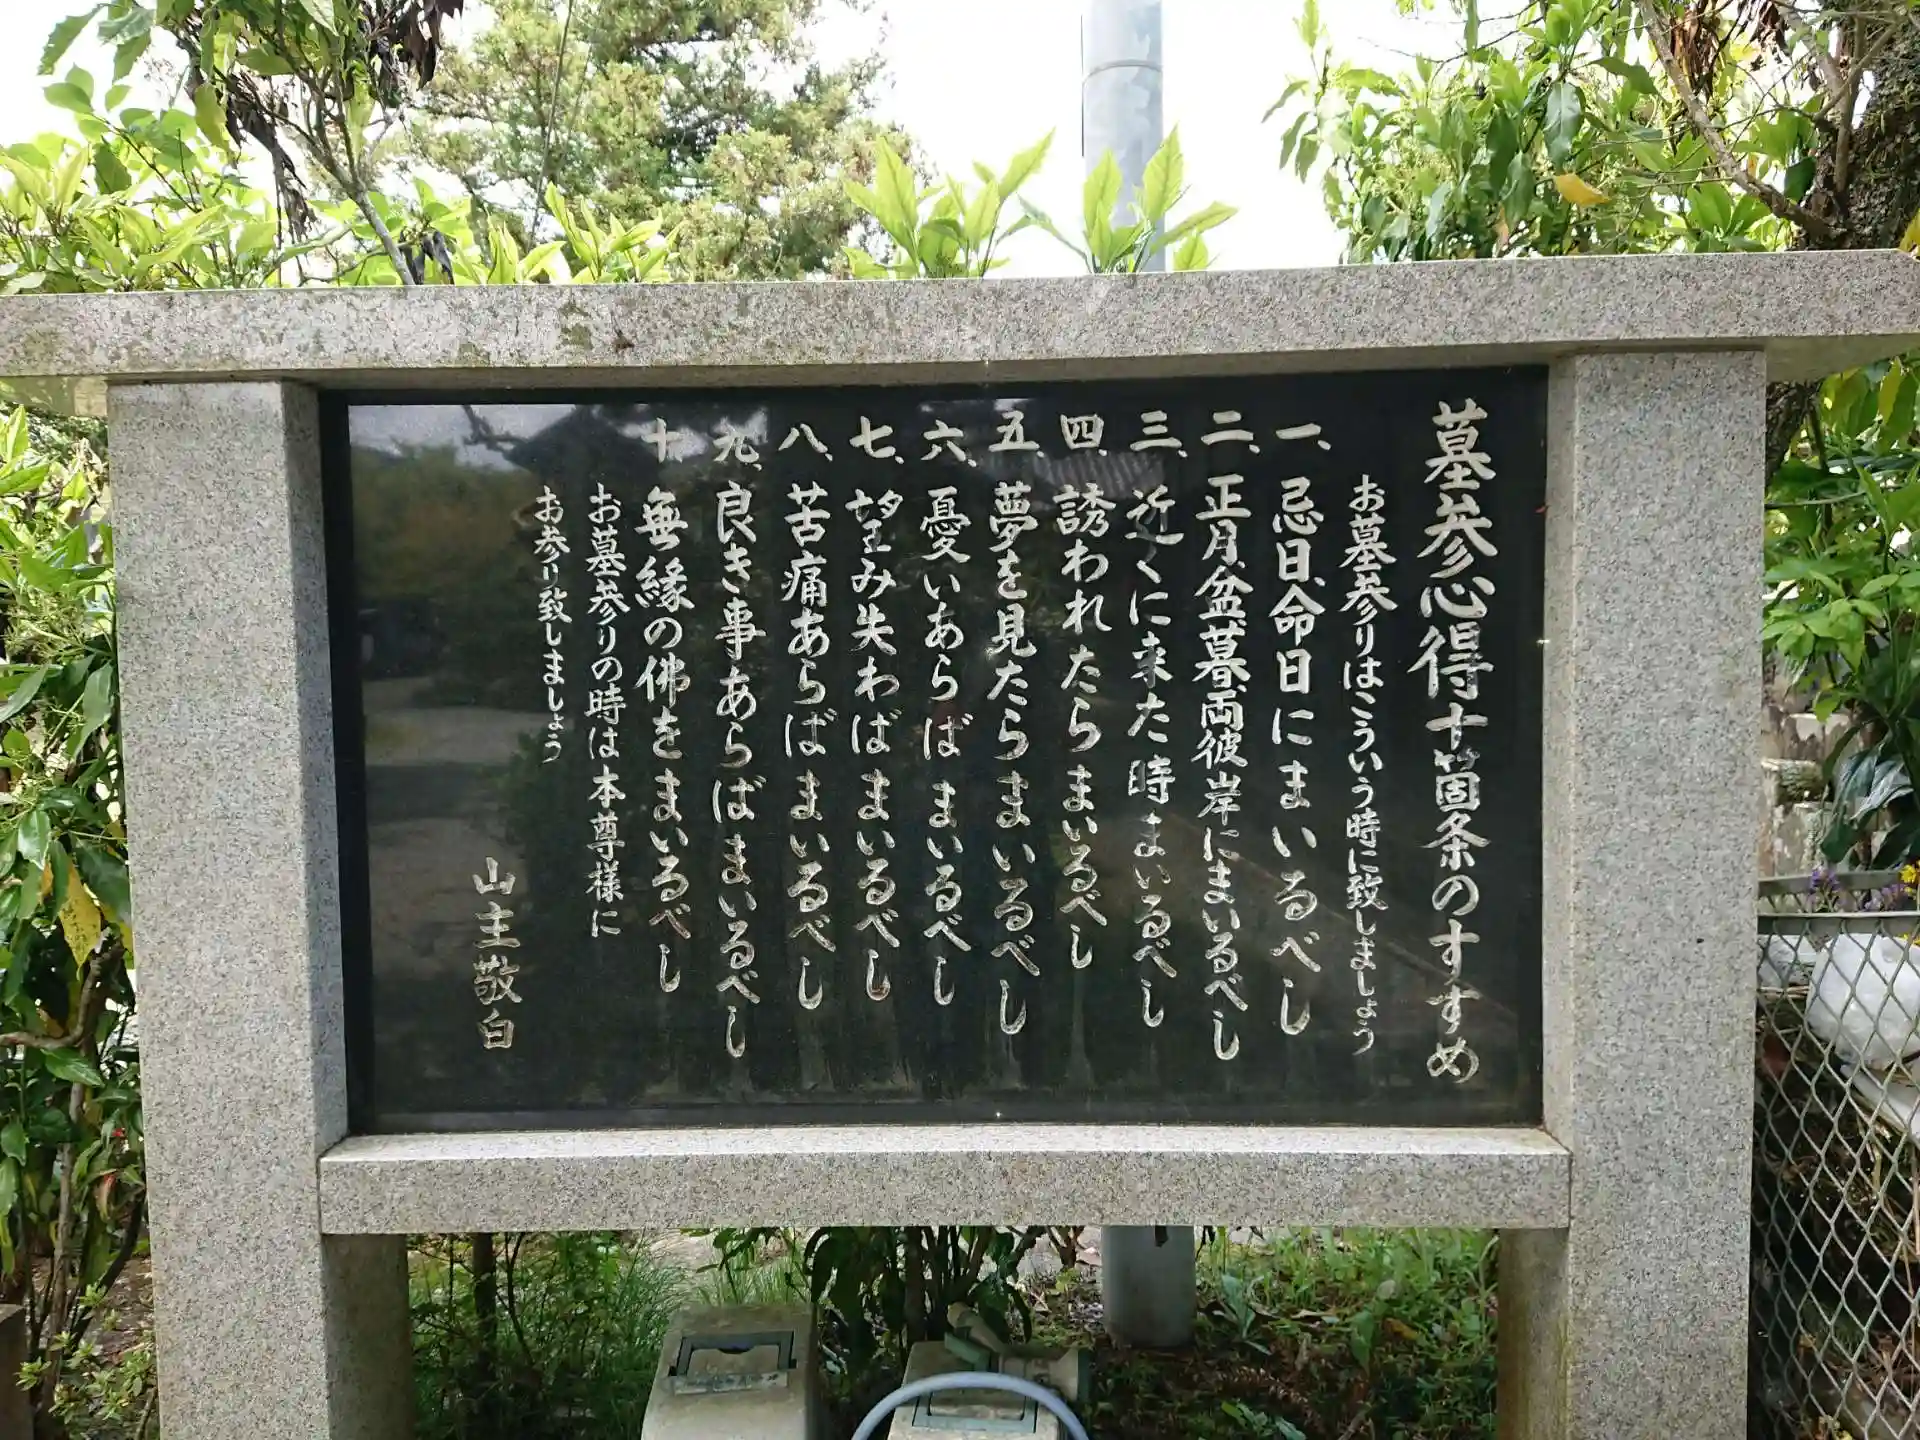 墓参心得十箇条のすすめ
お墓参りはこういう時に致しましょう
一、忌日、命日にまいるべし
二、正月、盆、暮、両彼岸にまいるべし
三、近くに来た時まいるべし
四、誘われたらまいるべし
五、夢を見たらまいるべし
六、憂いあらばまいるべし
七、望み失わばまいるべし
八、苦痛あらばまいるべし
九、良き事あらばまいるべし
十、無縁の佛をまいるべし
お墓参りの時は本尊様に
お参り致しましょう
山主敬白